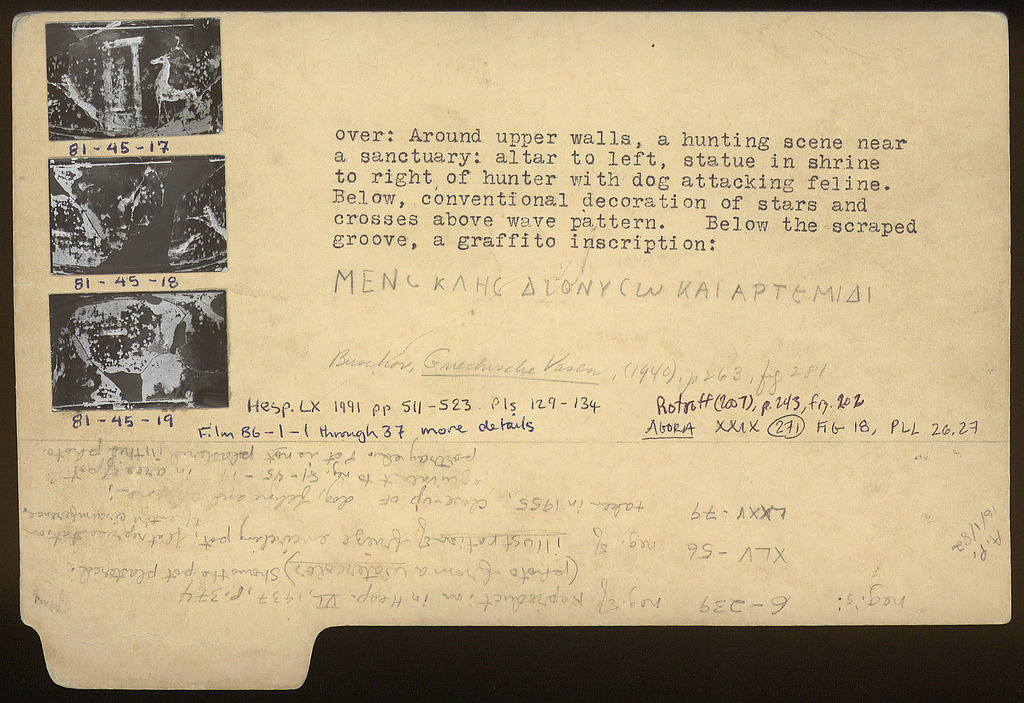 81-45-17
81-45-18
81-45-19
over: Around upper walls, a hunting scene near
a sanctuary: altar to left, statue in shrine
to right of hunter with dog attacking feline.
Below, conventional decoration of stars and
crosses above wave pattern. Below the scraped
groove, a graffito inscription:
ΜΕΝϹΚΛΗϹ ΔΙΟΝΥϹΩ ΚΑΙ ΑΡΤΕΜΙΔΙ
Buschor, Griechische Vasen, (1940), p 263, fig 281
Hesp. LX 1991 pp 511-523 Pls 129-134
Rotroff (2007), p. 243, fig. 202
Film 86-1-1 through 37 more details
AGORA XXIX (271) FIG 18, PLL 26,27
neg.'s: 6-239 neg. of reproduction in Hesp. VI, 1937, p. 374
(photo from a watercolor) Shows the pot plastered.
XLV-56 neg. of illustration of frieze encircling pot; 
of entire circumference.
LXXV-79 taken in 1955, close-up of dog, feline and
equivalent to neg. 81-45-17 in area of pot
portrayed. Pot is not plastered in this photo.